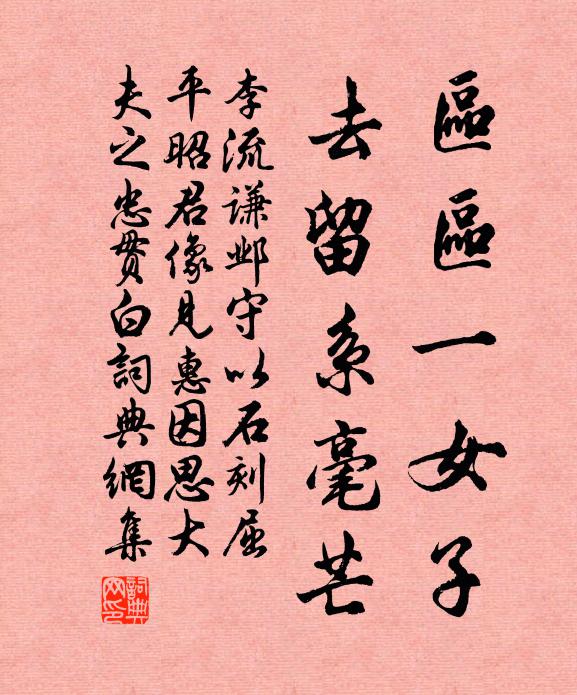 區區一女子
去留系毫芒
李流谦邺守以石刻屈
平昭君像見惠因思大
夫之忠貫白詞典網集
詞典網印